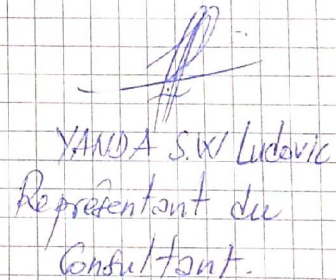 YANDA S.W Ludovic
Représentant du
Consultant.